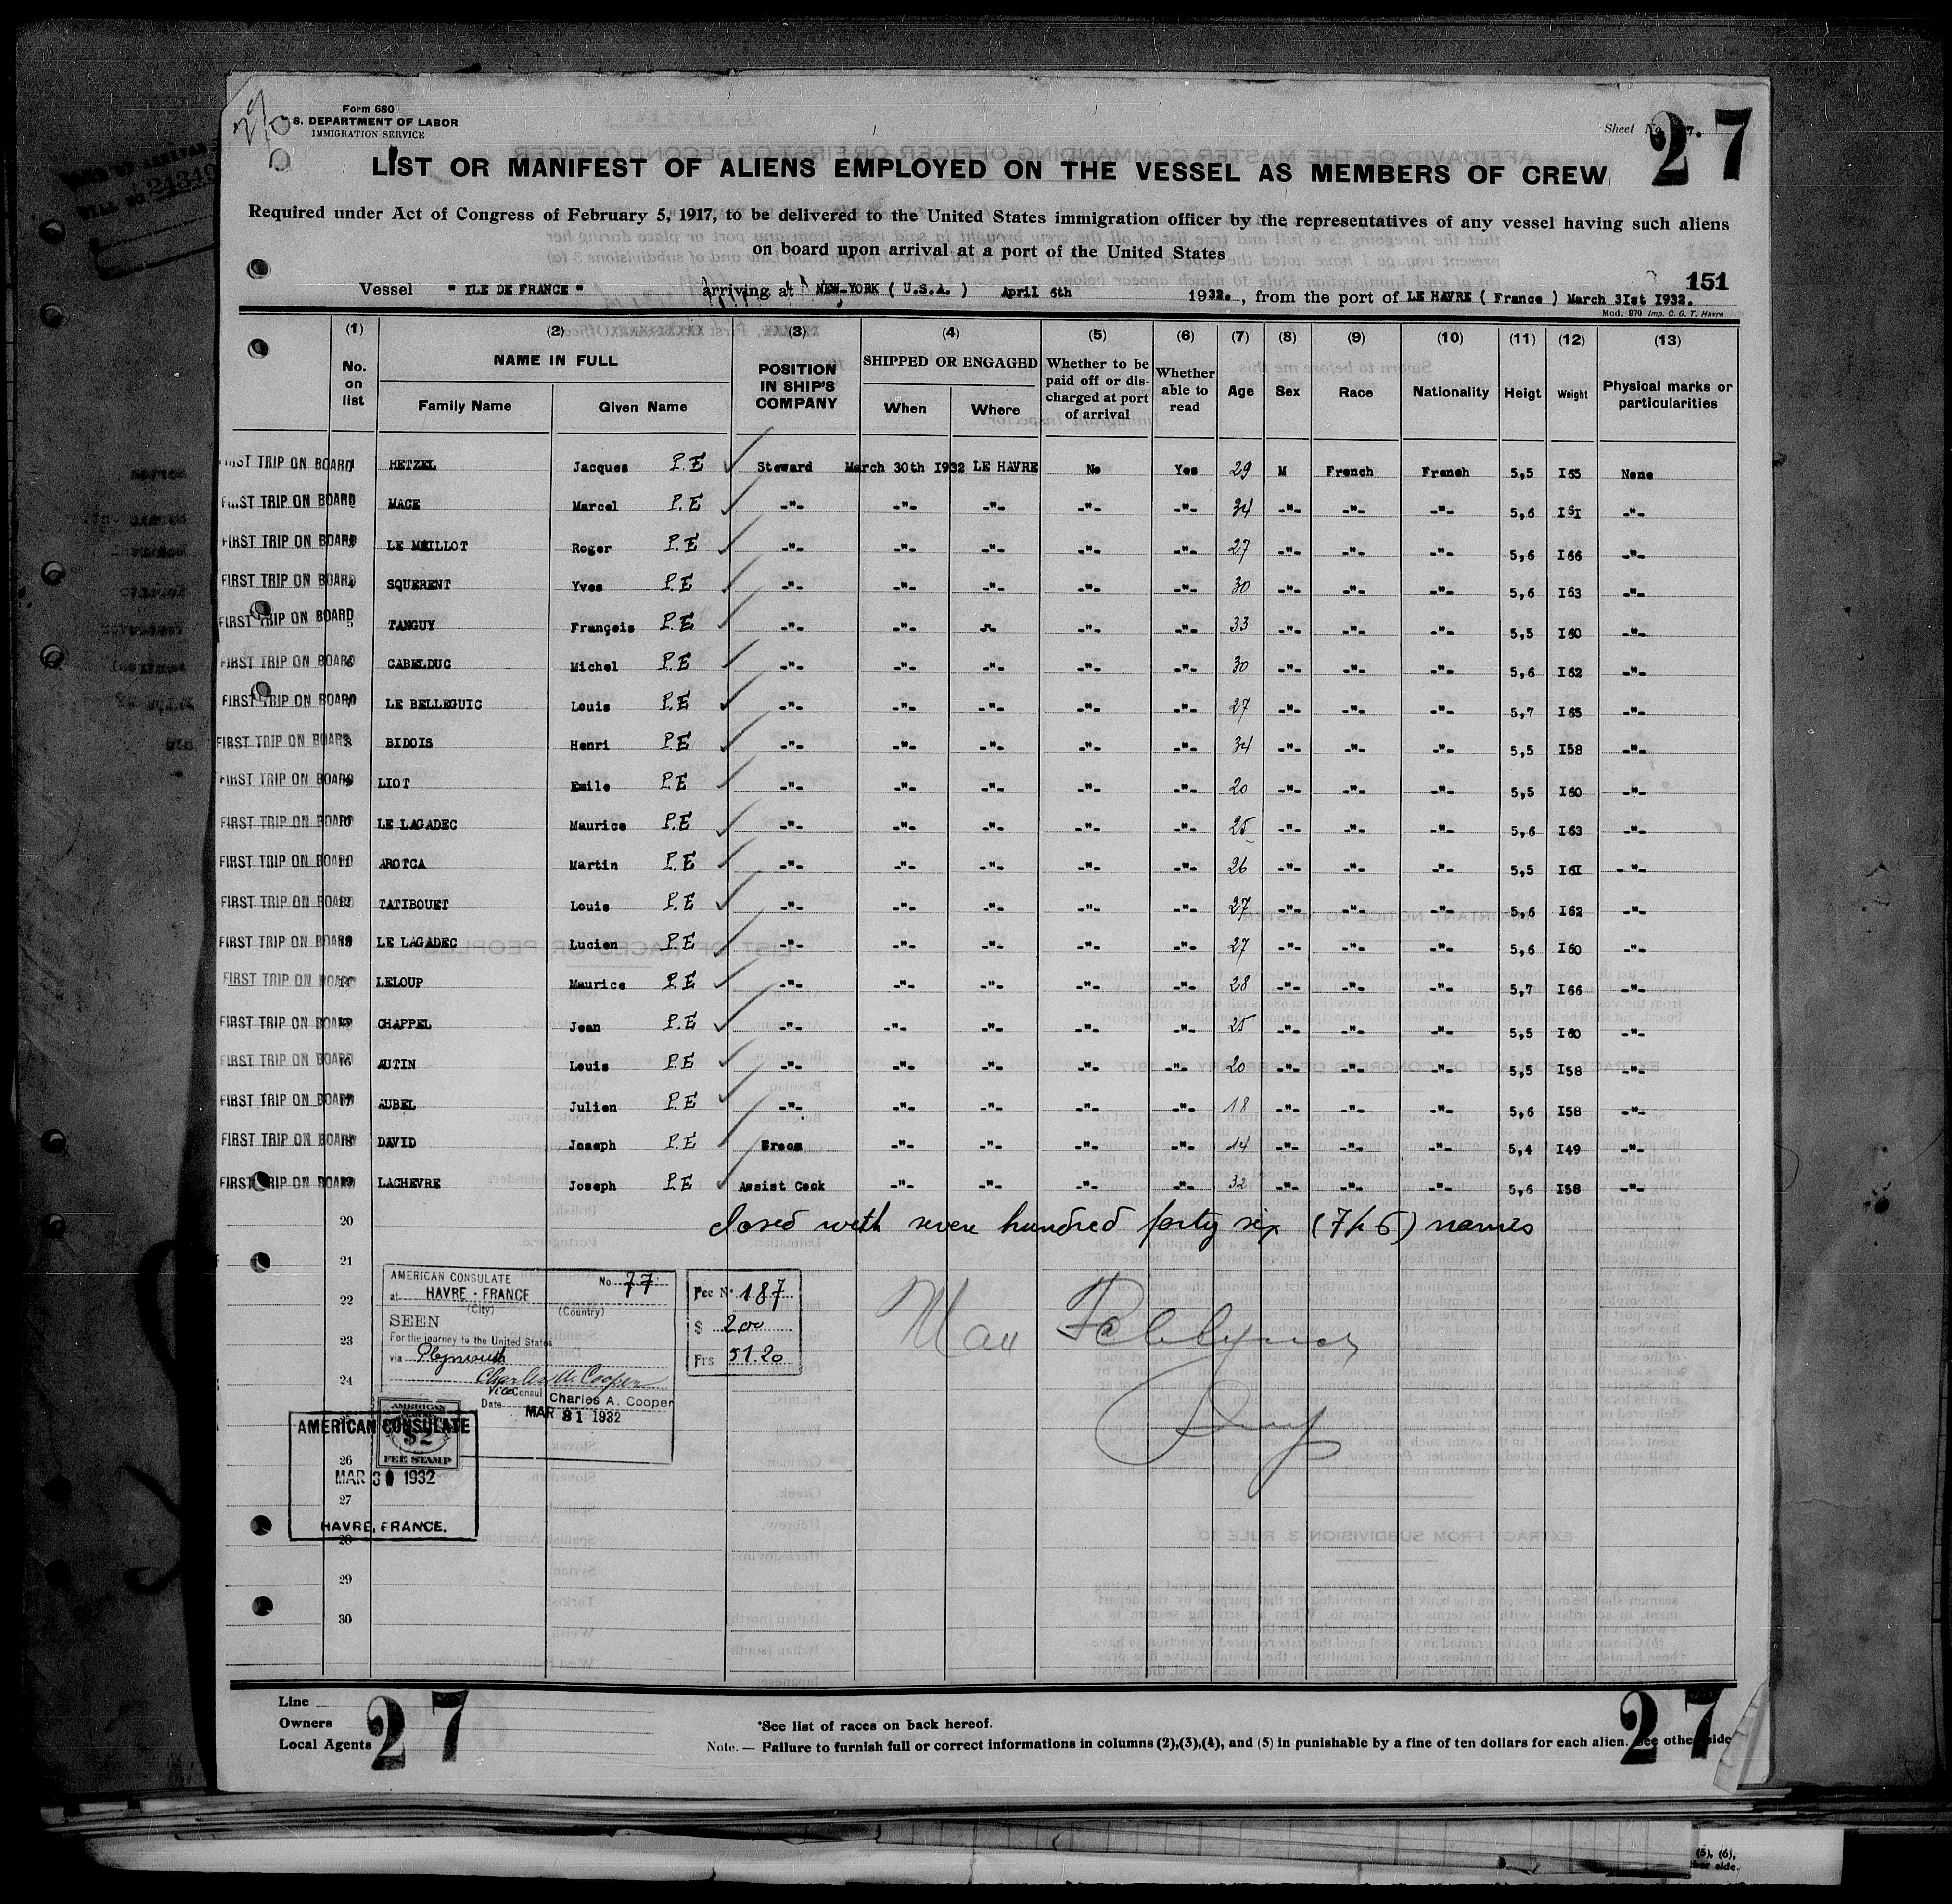 Form 680
S. DEPARTMENT OF LABOR
IMMIGRATION SERVICE
Sheet No. 7.
27
LIST OR MANIFEST OF ALIENS EMPLOYED ON THE VESSEL AS MEMBERS OF CREW
Required under Act of Congress of February 5, 1917, to be delivered to the United States immigration officer by the representatives of any vessel having such aliens
on board upon arrival at a port of the United States
151
Vessel " ILE DE FRANCE " arriving at NEW-YORK ( U.S.A. ) April 6th 1932. , from the port of LE HAVRE ( France ) March 3Ist I932.
Mod. 970 Imp. C. G. T. Havre
(1) (2) (3) (4) (5) (6) (7) (8) (9) (10) (11) (12) (13)
No. on list NAME IN FULL Family Name Given Name POSITION IN SHIP'S COMPANY SHIPPED OR ENGAGED When Where Whether to be paid off or discharged at port of arrival Whether able to read Age Sex Race Nationality Heigt Weight Physical marks or particularities
FIRST TRIP ON BOARD 1 HETZEL Jacques P.E Steward March 30th I932 LE HAVRE No Yes 29 M French French 5,5 I65 None
FIRST TRIP ON BOARD MACE Marcel P.E -"- -"- -"- -"- -"- 34 -"- -"- -"- 5,6 I6I -"-
FIRST TRIP ON BOARD LE MAILLOT Roger P.E -"- -"- -"- -"- -"- 27 -"- -"- -"- 5,6 I66 -"-
FIRST TRIP ON BOARD 4 SQUERENT Yves P.E -"- -"- -"- -"- -"- 30 -"- -"- -"- 5,6 I63 -"-
FIRST TRIP ON BOARD 5 TANGUY François P.E -"- -"- -"- -"- -"- 33 -"- -"- -"- 5,5 I60 -"-
FIRST TRIP ON BOARD 6 CABELDUC Michel P.E -"- -"- -"- -"- -"- 30 -"- -"- -"- 5,6 I62 -"-
FIRST TRIP ON BOARD 7 LE BELLEGUIC Louis P.E -"- -"- -"- -"- -"- 27 -"- -"- -"- 5,7 I65 -"-
FIRST TRIP ON BOARD 8 BIDOIS Henri P.E -"- -"- -"- -"- -"- 34 -"- -"- -"- 5,5 I58 -"-
FIRST TRIP ON BOARD 9 LIOT Emile P.E -"- -"- -"- -"- -"- 20 -"- -"- -"- 5,5 I60 -"-
FIRST TRIP ON BOARD 10 LE LAGADEC Maurice P.E -"- -"- -"- -"- -"- 25 -"- -"- -"- 5,6 I63 -"-
FIRST TRIP ON BOARD 11 AROTCA Martin P.E -"- -"- -"- -"- -"- 26 -"- -"- -"- 5,5 I6I -"-
FIRST TRIP ON BOARD 12 TATIBOUET Louis P.E -"- -"- -"- -"- -"- 27 -"- -"- -"- 5,6 I62 -"-
FIRST TRIP ON BOARD 13 LE LAGADEC Lucien P.E -"- -"- -"- -"- -"- 27 -"- -"- -"- 5,6 I60 -"-
FIRST TRIP ON BOARD 14 LELOUP Maurice P.E -"- -"- -"- -"- -"- 28 -"- -"- -"- 5,7 I66 -"-
FIRST TRIP ON BOARD 15 CHAPPEL Jean P.E -"- -"- -"- -"- -"- 25 -"- -"- -"- 5,5 I60 -"-
FIRST TRIP ON BOARD 16 AUTIN Louis P.E -"- -"- -"- -"- -"- 20 -"- -"- -"- 5,5 I58 -"-
FIRST TRIP ON BOARD 17 AUBEL Julien P.E -"- -"- -"- -"- -"- 18 -"- -"- -"- 5,6 I58 -"-
FIRST TRIP ON BOARD 18 DAVID Joseph P.E Broom -"- -"- -"- -"- 14 -"- -"- -"- 5,4 I49 -"-
FIRST TRIP ON BOARD 19 LACHEVRE Joseph P.E Assist Cook -"- -"- -"- -"- 32 -"- -"- -"- 5,6 I58 -"-
20 closed with seven hundred forty six (746) names
21
22
23
24
26
27
28
29
30
AMERICAN CONSULATE No. 77
at HAVRE - FRANCE
(City) (Country)
SEEN
For the journey to the United States
via Plymouth
Charles A. Cooper
Vice Consul Charles A. Cooper
Date MAR 31 1932
Fee No 187
$ 200
Frs 51.20
AMERICAN
$2
FEE STAMP
AMERICAN CONSULATE
MAR 31 1932
HAVRE, FRANCE.
Line
Owners
Local Agents
27
*See list of races on back hereof.
Note. — Failure to furnish full or correct informations in columns (2),(3),(4), and (5) in punishable by a fine of ten dollars for each alien. See other side
27
(5), (6),
her side.